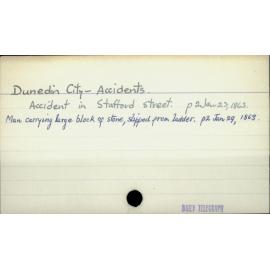 Dunedin City - Accidents.
Accident in Stafford street. p2 Jan 27, 1863.
Man carrying large block of stone, slipped from ladder. p2 Jan 29, 1863.
DAILY TELEGRAPH